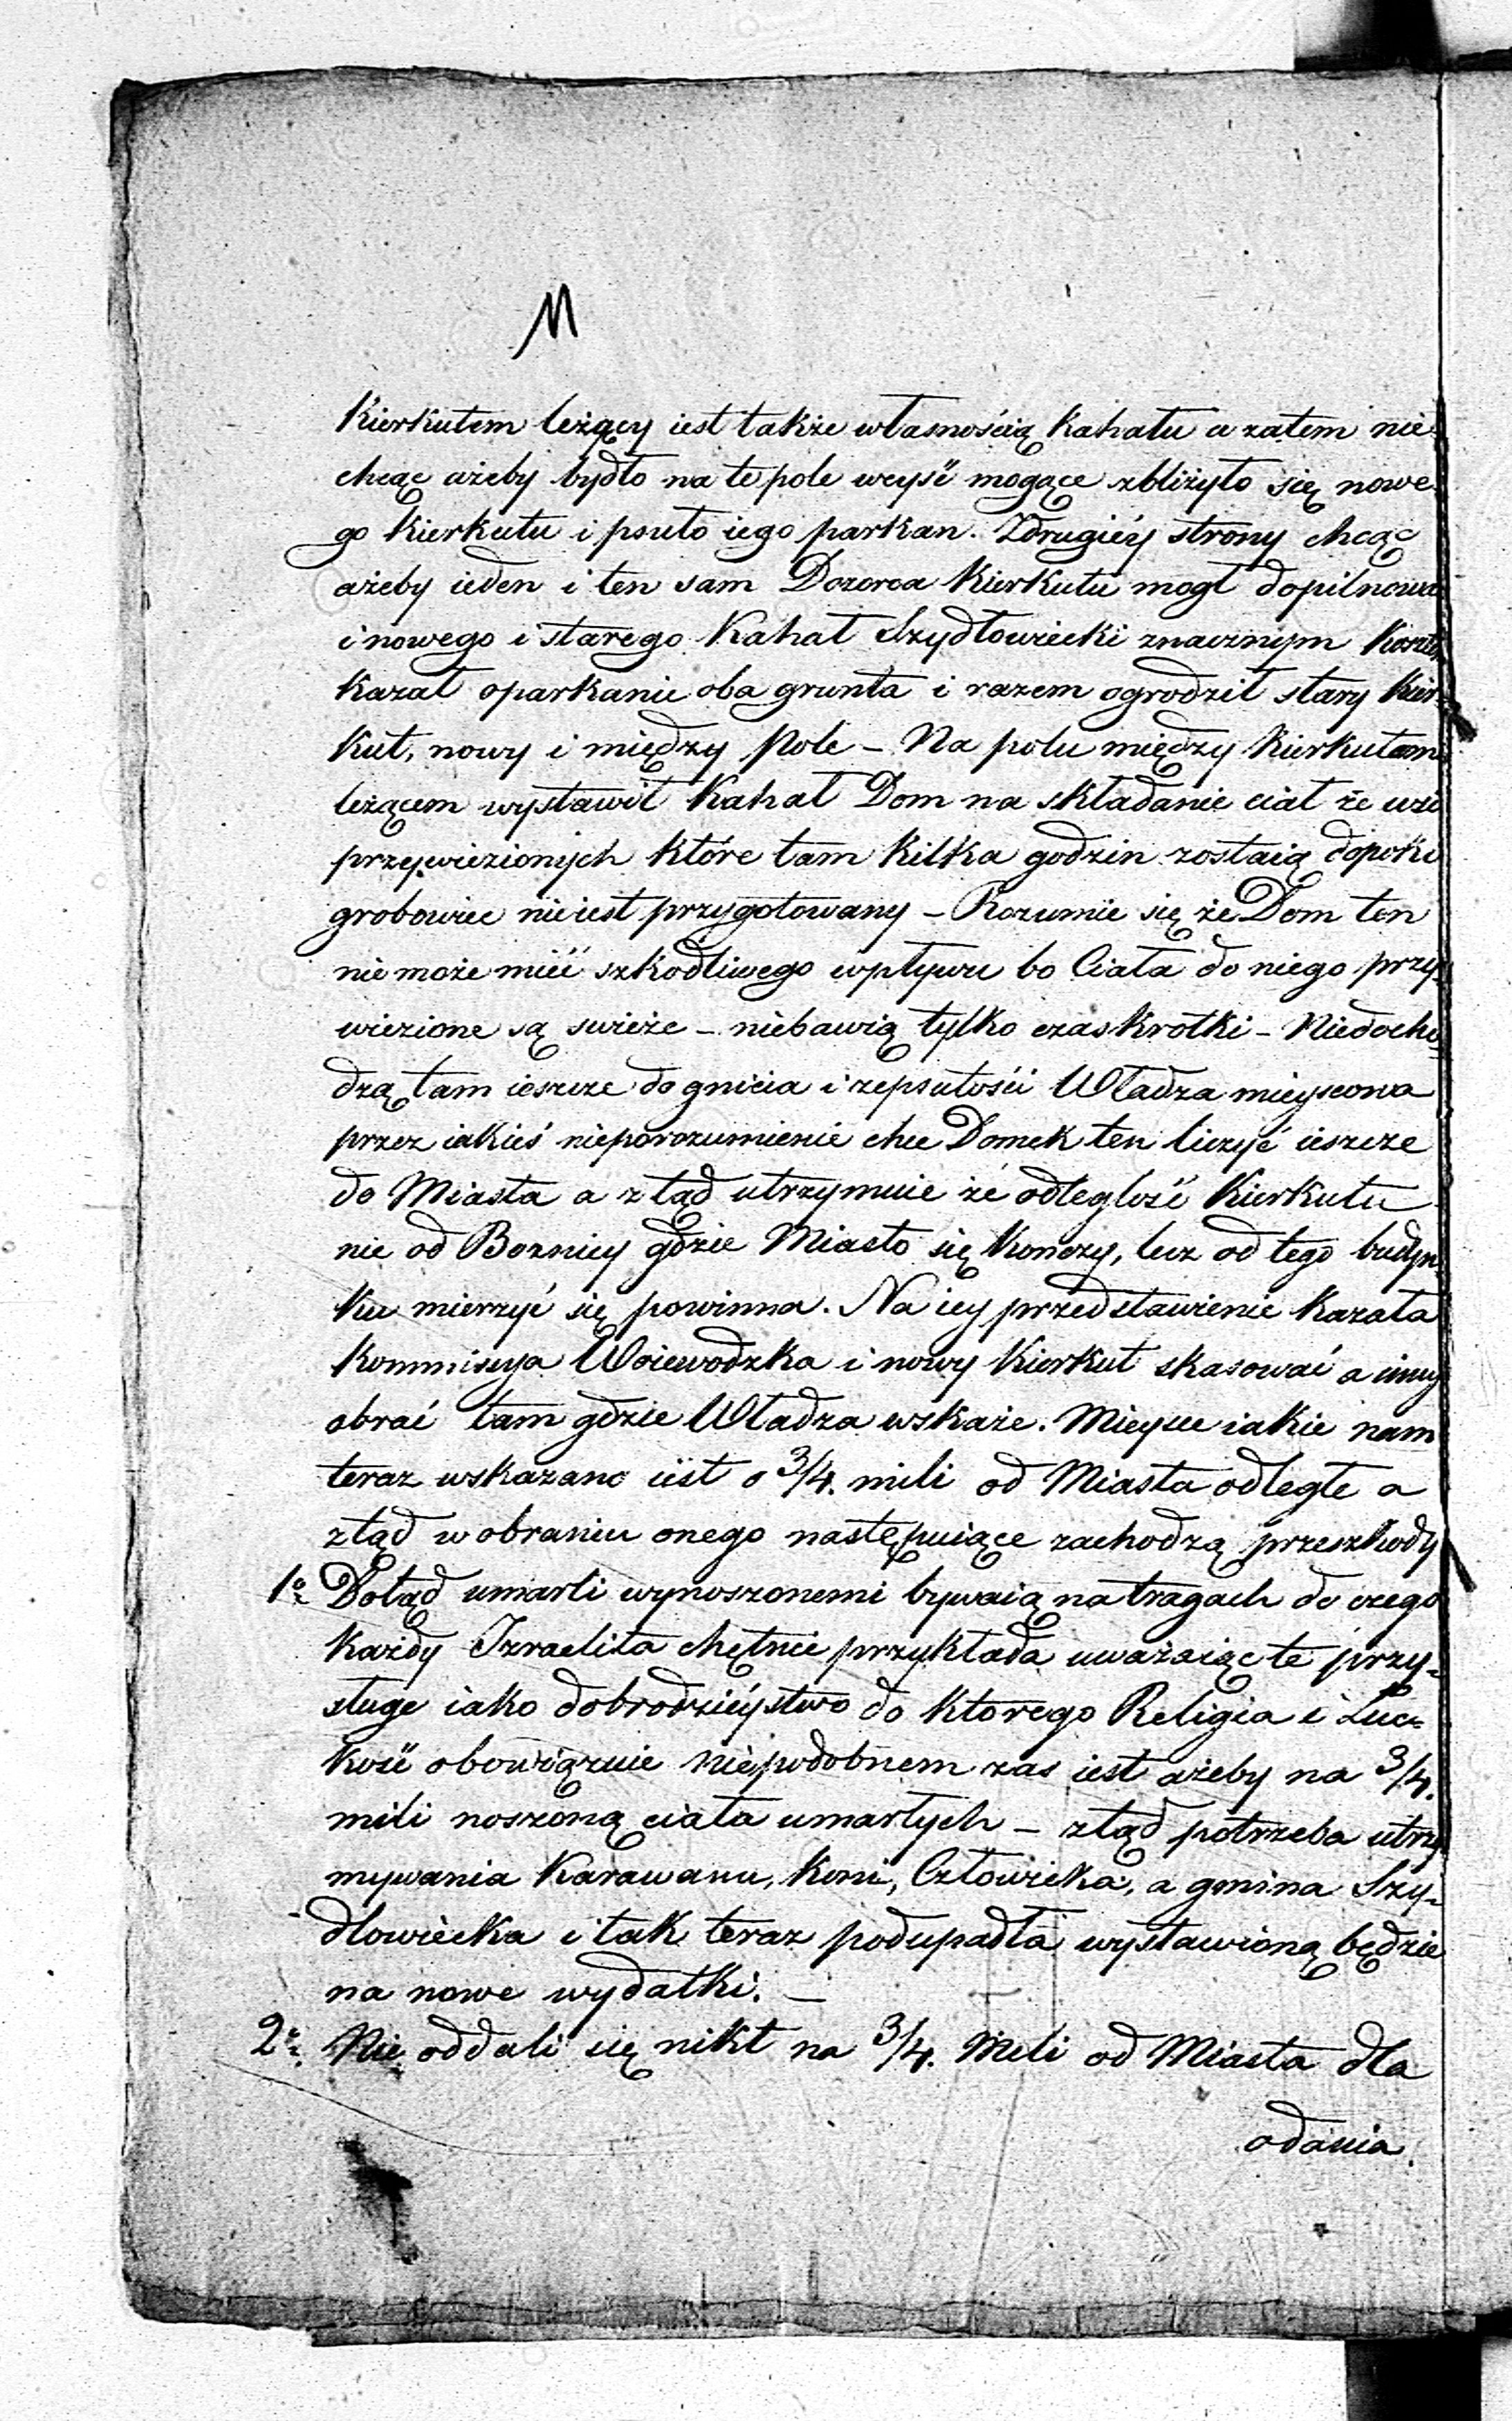 M
Kierkutem leżący iest także własnością Kahału a zatem nie
chcąc ażeby bydło na te pole weyść mogące zbliżyło się nowe-
go Kierkutu i psuło iego parkan. Zdrugiéy strony chcąc
ażeby ieden i ten sam Dozorca Kierkutu mogł dopilnowa
i nowego i starego Kahał Szydłowiecki znacznym Koszte
Kazał oparkanie oba grunta i razem ogrodził stary Kier-
Kut, nowy i między Pole – Na polu między Kierkutem
leżącem wystawił Kahał Dom na składanie ciał ze wsi
przywiezionych które tam Kilka godzin zostaią dopoki
grobowiec nieiest przygotowany – Rozumie się że Dom ten
nie może mieć szkodliwego wpływu bo Ciała do niego przy-
wiezione są swieże – niebawią tylko czas krotki – Niedocho-
dzą tam ieszcze do gnicia i zepsutości Władza mieyscowa
przez iakieś nieporozumienie chce Domek ten liczyć ieszcze
do Miasta a ztąd utrzymuie że odległość Kierkutu
nie od Boznicy gdzie Miasto się Konczy, lecz od tego budyn-
Ku mierzyć się powinna. Na iey przedstawienie Kazała
Kommissya Woiewodzka i nowy Kierkut skasować a inny
obrać tam gdzie Władza wskaże. Mieysce iakie nam
teraz wskazano iest o 3/4. mili od Miasta odległe a
ztąd w obraniu onego następuiące zachodzą przeszkody
1o Dotąd umarli wynoszonemi bywaią na tragach do czego
Każdy Izraelita chętnie przykłada uważaiąc te przy-
sługe iako dobrodzieystwo do ktorego Religia i Luc-
kość obowiązuie niepodobnem zas iest ażeby na 3/4.
mili noszoną ciała umarłych – ztąd potrzeba utrzy
mywania Karawanu, Koni, Człowieka, a gmina Szy-
dłowiecka i tak teraz podupadła wystawioną będzie
na nowe wydatki. –
2o Nie oddali się nikt na 3/4. Mili od Miasta dla
odania